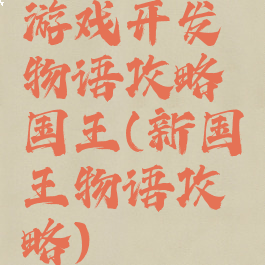 游戏开发
物语攻略
国王(新国
王物语攻
略)